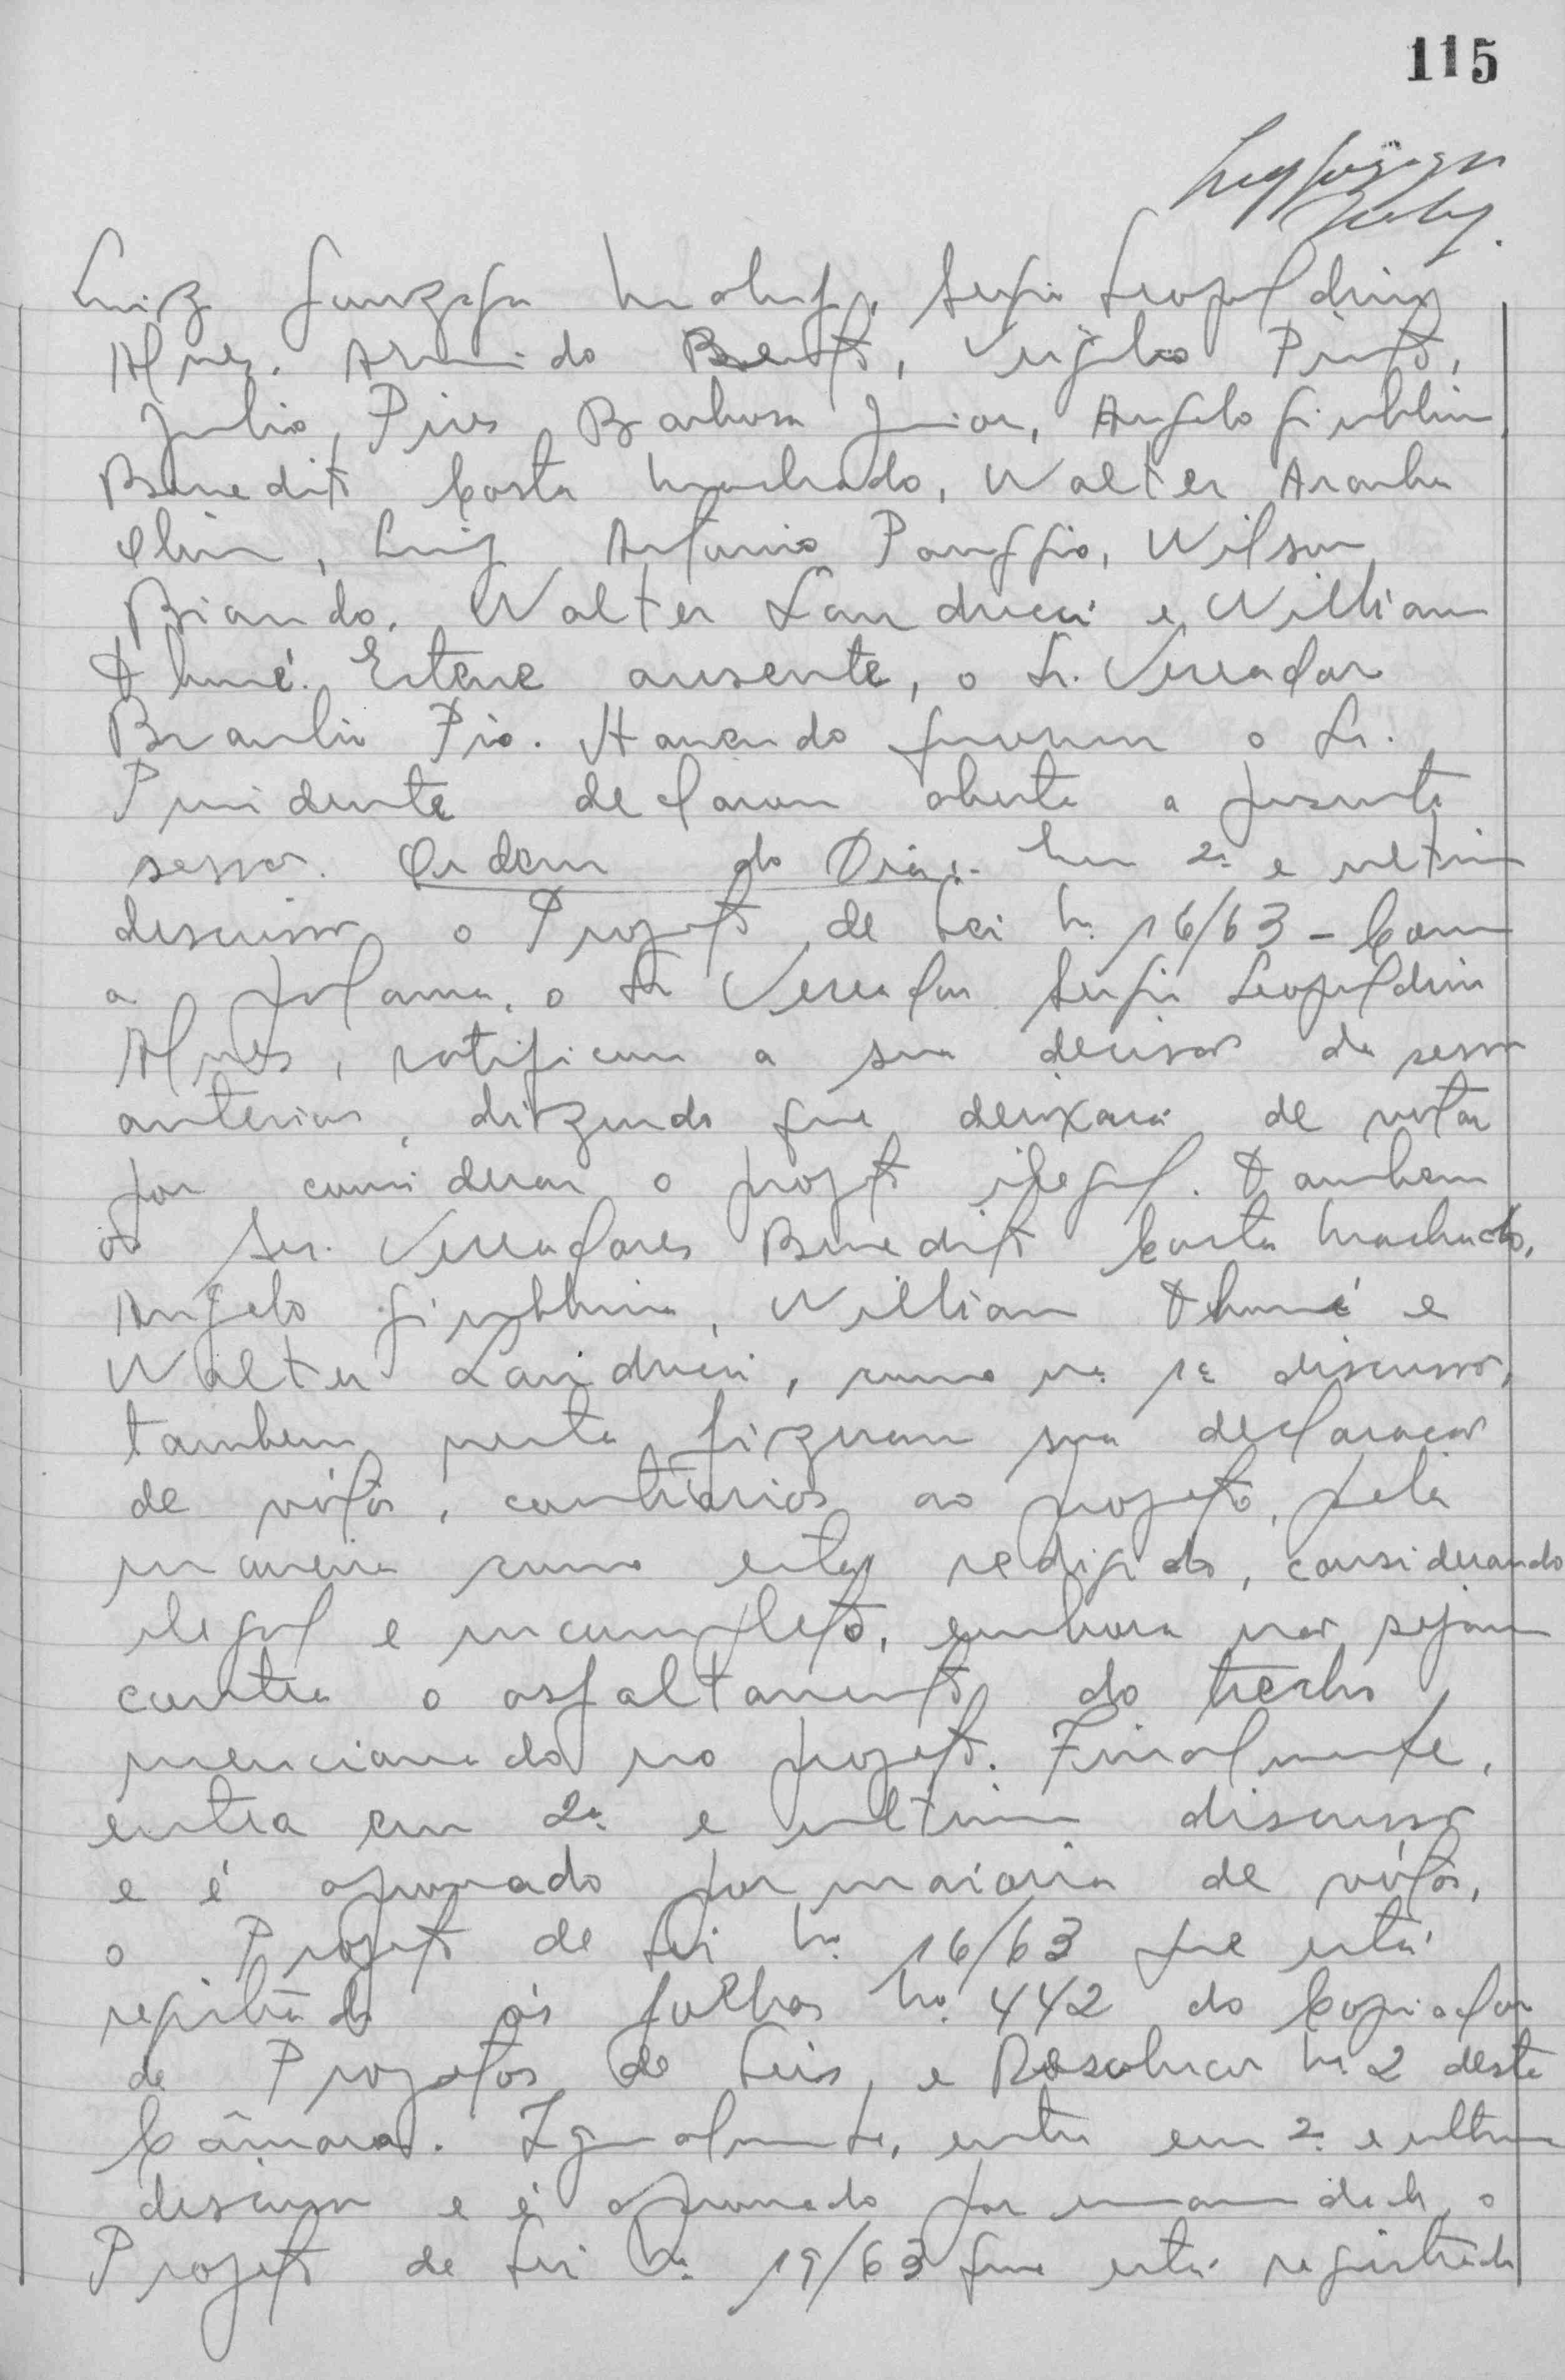 115
Luiz Gonzaga Sergio Leopoldino
Alves, Armindo Bento, Virgilio Pinto,
Julio Pires Barbosa Junior, Angelo
Benedito Costa Machado, Walter Aranha
Luiz Antonio Wilson
Biando, Walter Landucci e Willian
Thomé. Esteve ausente, o Sr. Vereador
Braulio Pio. Havendo quorum o Sr.
Presidente declarou aberta a presente
sessão. Ordem do Dia:- Em 2ª e ultima
discussão o Projeto de Lei Nº 16/63 - Com
a palavra, o Sr Vereador Sergio Leopoldino
Alves, ratificou a sua decisão da sessão
anterior, dizendo que deixará de votar
por considerar o projeto ilegal. Tambem
os Srs. Vereadores Benedito Costa Machado,
Angelo Willian Thomé e
Walter Landucci, como na 1ª discussão,
tambem nesta fizeram sua declaração
de vótos, contrários ao projeto, pela
maneira como está redigido, considerando
ilegal e incompleto, embora não sejam
contra o asfaltamento do trecho
mencionado no projeto. Finalmente,
entra em 2ª e ultima discussão
e é aprovado por maioria de vótos,
o Projeto de Lei Nº 16/63 que está
registrado ás folhas Nº 442 do Copiador
de Projetos de Leis, e Resolução Nº 2 desta
Câmara. Igualmente, entra em 2ª e ultima
discussão e é aprovado por unanimidade o
Projeto de Lei Nº 19/63 que está registrado